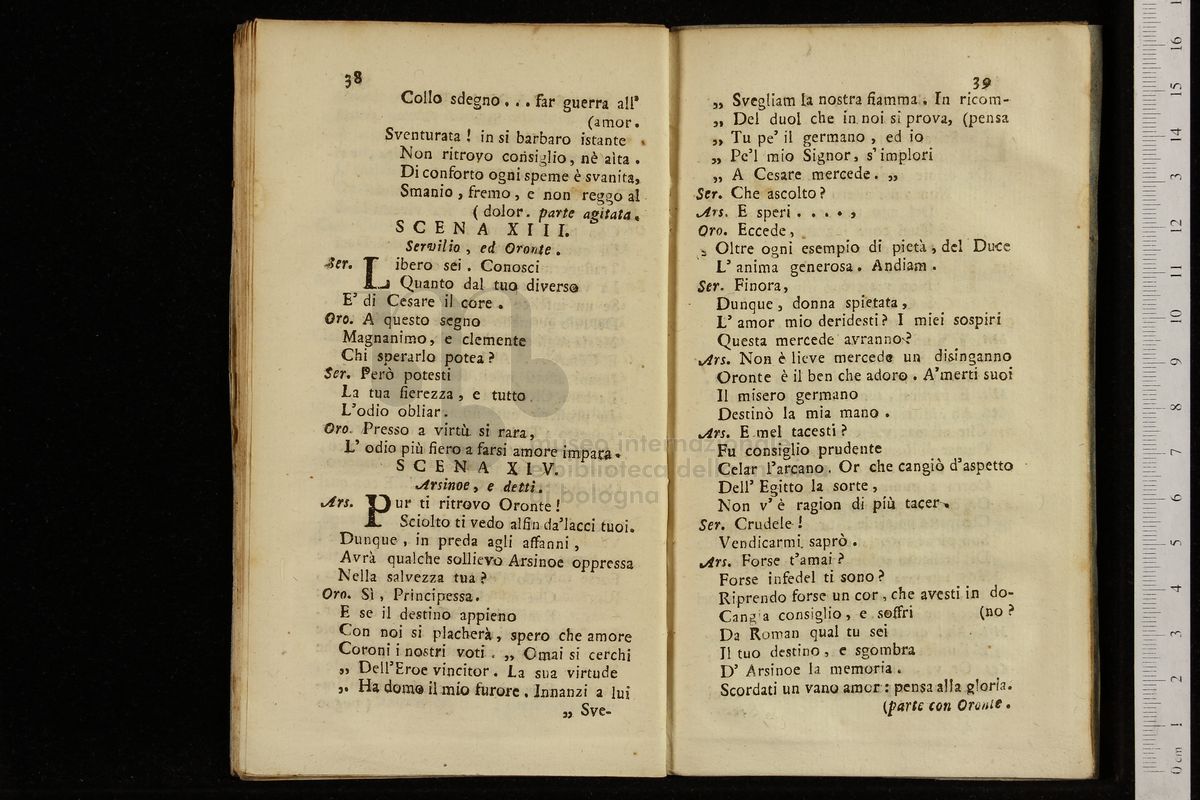 38
Collo sdegno... far guerra all'
(amor.
Sventurata! in si barbaro istante
Non ritrovo consiglio, nè aita.
Di conforto ogni speme è svanita,
Smanio, fremo, e non reggo al
(dolor. parte agitata.
SCENA XIII.
Servilio, ed Oronte.
Ser. Libero sei. Conosci
Quanto dal tuo diverso
E' di Cesare il core.
Oro. A questo segno
Magnanimo, e clemente
Chi sperarlo potea?
Ser. Però potesti
La tua fierezza, e tutto
L'odio obliar.
Oro. Presso a virtù si rara,
L' odio più fiero a farsi amore impara.
SCENA XIV.
Arsinoe, e detti.
Ars. Pur ti ritrovo Oronte!
Sciolto ti vedo alfin da'lacci tuoi.
Dunque, in preda agli affanni,
Avrà qualche sollievo Arsinoe oppressa
Nella salvezza tua?
Oro. Sì, Principessa.
E se il destino appieno
Con noi si placherà, spero che amore
Coroni i nostri voti. „ Omai si cerchi
„ Dell'Eroe vincitor. La sua virtude
„ Ha domo il mio furore. Innanzi a lui
„ Sve-
39
„ Svegliam la nostra fiamma. In ricom-
„ Del duol che in noi si prova, (pensa
„ Tu pe' il germano, ed io
„ Pe'l mio Signor, s'implori
„ A Cesare mercede. „
Ser. Che ascolto?
Ars. E speri . . . . ,
Oro. Eccede,
Oltre ogni esempio di pietà, del Duce
L' anima generosa. Andiam.
Ser. Finora,
Dunque, donna spietata,
L' amor mio deridesti? I miei sospiri
Questa mercede avranno?
Ars. Non è lieve mercede un disinganno
Oronte è il ben che adoro. A'merti suoi
Il misero germano
Destinò la mia mano.
Ars. E mel tacesti?
Fu consiglio prudente
Celar l'arcano. Or che cangiò d'aspetto
Dell' Egitto la sorte,
Non v' è ragion di più tacer.
Ser. Crudele!
Vendicarmi saprò.
Ars. Forse t'amai?
Forse infedel ti sono?
Riprendo forse un cor, che avesti in do-
Cangia consiglio, e soffri (no?
Da Roman qual tu sei
Il tuo destino, e sgombra
D' Arsinoe la memoria.
Scordati un vano amor: pensa alla gloria.
(parte con Oronte.
museo internazionale
e biblioteca della musica
di bologna
0 cm 1 2 3 4 5 6 7 8 9 10 11 12 13 14 15 16